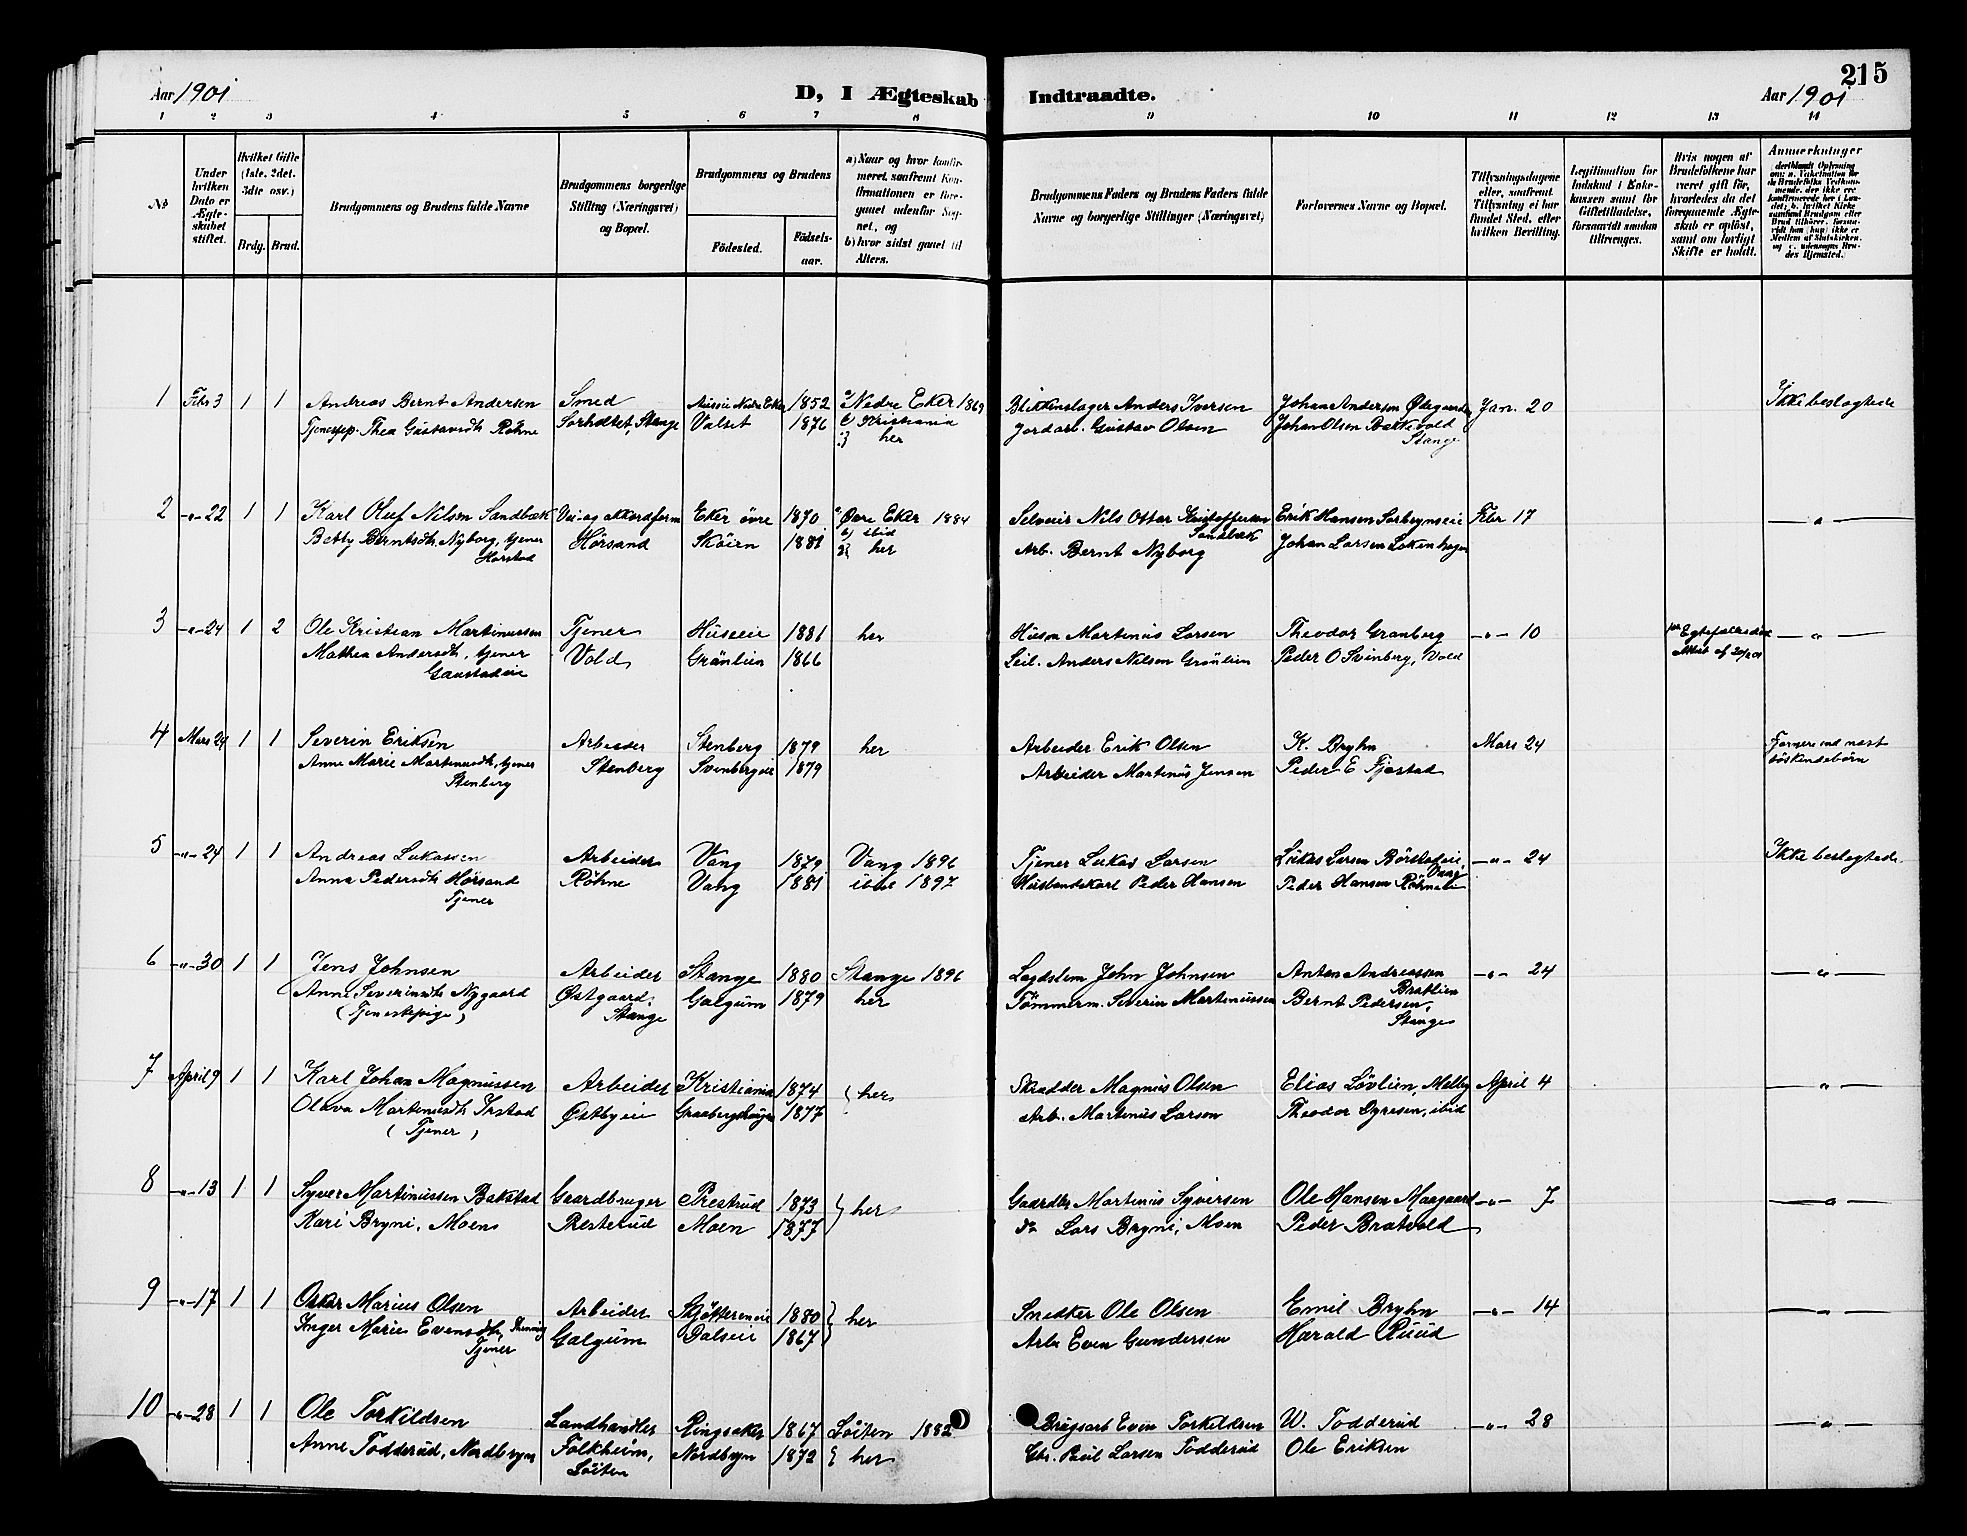 Aar 1901
D, I Ægteskab Indtraadte.
215
Aar 1901
1 2 3 4 5 6 7 8 9 10 11 12 13 14
No
Under hvilken Dato er Ægteskabet stiftet.
Hvilket Gifte (1ste. 2det. 3die osv.)
Brdg. Brud.
Brudgommens og Brudens fulde Navne
Brudgommens borgerlige Stilling (Næringsvei) og Bopæl.
Brudgommens og Brudens
Fødested.
Fødselsaar.
a) Naar og hvor konfirmeret, saafremt Konfirmationen er foregaaet udenfor Sognet, og
b) hvor sidst gaaet til Alters.
Brudgommens Faders og Brudens Faders fulde Navne og borgerlige Stillinger (Næringsvei)
Forlovernes Navne og Bopæl.
Tillysningsdagene eller, saafremt Tillysning ei har fundet Sted, efter hvilken Bevilling.
Legitimation for Indskud i Enkekassen samt for Giftetilladelse, forsaavidt saadan tiltrænges.
Hvis nogen af Brudefolkene har været gift før, hvorledes da det foregaaende Ægteskab er opløst, samt om lovligt Skifte er holdt.
Anmerkninger
1 Febr 3 1 1 Andreas Bernt Andersen Smed Nedre Eker 1852 a) Nedre Eker 1869 Blikkenslager Anders Iversen Johan Andersen Ødegaarden Jan. 20 Ikke beslegtede
Tjenestep. Thea Gustavsdtr Røhne Sørholtet, Stange Valset 1876 b) Kristiania Jordarb. Gustav Olsen Johan Olsen Bakkevold
her Stange
2 -"- 22 1 1 Karl Oluf Nilsen Sandbæk Vei og akkordform Eker øvre 1870 a) Øvre Eker 1884 Selveier Nils Ottar Kristoffersen Erik Hansen Sørbryneie Febr 17 -"-
Betby Berntsdtr Nyborg, tjener Hørsand Skøien 1881 b) ibid Sandbæk
Horstad her Arb. Bernt Nyborg Johan Larsen Løkenhagen
3 -"- 24 1 2 Ole Kristian Martinussen Tjener Huseeie 1881 her Husm Martinus Larsen Theodor Granberg -"- 10 Egtefælles død -"-
Mathea Andersdtr, tjener Vold Grønlien 1866 Leil. Anders Nilsen Grønlien Peder O Svenberg, Vold Attest af
Gaustadeie
4 Mars 24 1 1 Severin Eriksen Arbeider Stenberg 1879 her Arbeider Erik Olsen K. Bryhn Mars 24 Fjernere end næst
Anne Marie Martinusdtr, tjener Stenberg Svenbergeie 1879 Arbeider Martinus Jensen Peder E Fjæstad søskendebørn
Stenberg
5 -"- 24 1 1 Andreas Lukassen Arbeider Vang 1879 Vang 1896 Tjener Lukas Larsen Lukas Larsen Børstadeie, -"- 24 Ikke beslegtede
Anna Pedersdtr Hørsand Røhne Vang 1881 ibid 1897 Husmandskarl Peder Hansen Vang
Tjener Peder Hansen Røhneeie
6 -"- 30 1 1 Jens Johnsen Arbeider Stange 1880 Stange 1896 Lægdslem John Johnsen Anton Andreassen -"- 24 -"-
Anne Severinsdtr Nygaard Østgaard, Galgum 1879 her Tømmerm. Severin Martinussen Bratlien
(Tjenestepige) Stange Bernt Pedersen,
Stange
7 April 9 1 1 Karl Johan Magnussen Arbeider Kristiania 1874 her Skrædder Magnus Olsen Elias Løvlien, Melby April 4 -"-
Olava Martinusdtr Irstad Østbyeie Graabergshaugen 1877 Arb. Martinus Larsen Theodor Dyresen, ibid
(Tjener)
8 -"- 13 1 1 Syver Martinussen Bakstad Gaardbruger Prestrud 1873 her Gaardbr Martinus Syversen Ole Hansen Maagaard -"- 7 -"-
Kari Bryni, Moen Presterud Moen 1877 Do Lars Bryni, Moen Peder Bratvold
9 -"- 17 1 1 Oskar Marius Olsen Arbeider Skjøttereneie 1880 her Snedker Ole Olsen Emil Bryhn -"- 14 -"-
Inger Marie Evensdtr, Galgum Dalseie 1867 Arb. Even Gundersen Harald Ruud
Tjener
10 -"- 28 1 1 Ole Torkildsen Landhandler Ringsaker 1867 Løiten 1882 Brugsarb Even Torkildsen W. Todderud -"- 28 -"-
Anne Todderud, Nordbryni Folkheim, Nordbryn 1872 her Gbr. Paul Larsen Todderud Ole Eriksen
Løiten